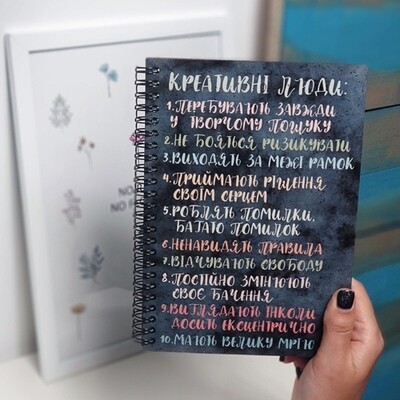 КРЕАТИВНІ ЛЮДИ:
1.ПЕРЕБУВАЮТЬ ЗАВЖДИ
У ТВОРЧОМУ ПОШУКУ
2.НЕ БОЯТЬСЯ РИЗИКУВАТИ
3.ВИХОДЯТЬ ЗА МЕЖІ РАМОК
4.ПРИЙМАЮТЬ РІШЕННЯ
СВОЇМ СЕРЦЕМ
5.РОБЛЯТЬ ПОМИЛКИ,
БАГАТО ПОМИЛОК
6.НЕНАВИДЯТЬ ПРАВИЛА
7.ВІДЧУВАЮТЬ СВОБОДУ
8.ПОСТІЙНО ЗМІНЮЮТЬ
СВОЄ БАЧЕННЯ
9.ВИГЛЯДАЮТЬ ІНКОЛИ
ДОСИТЬ ЕКСЦЕНТРИЧНО
10.МАЮТЬ ВЕЛИКУ МРІЮ